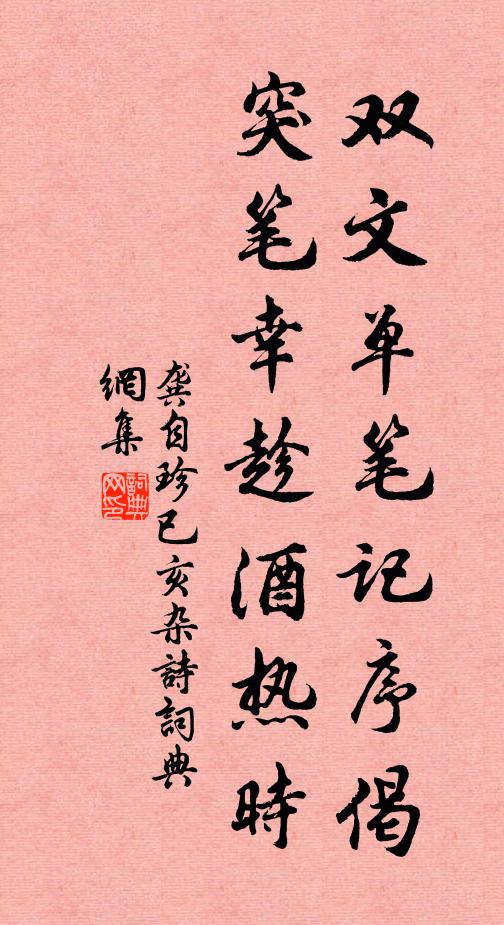 双文单笔记序偈
突笔幸趁酒热時
龚自珍己亥杂詩詞典
網集
詞典
网印